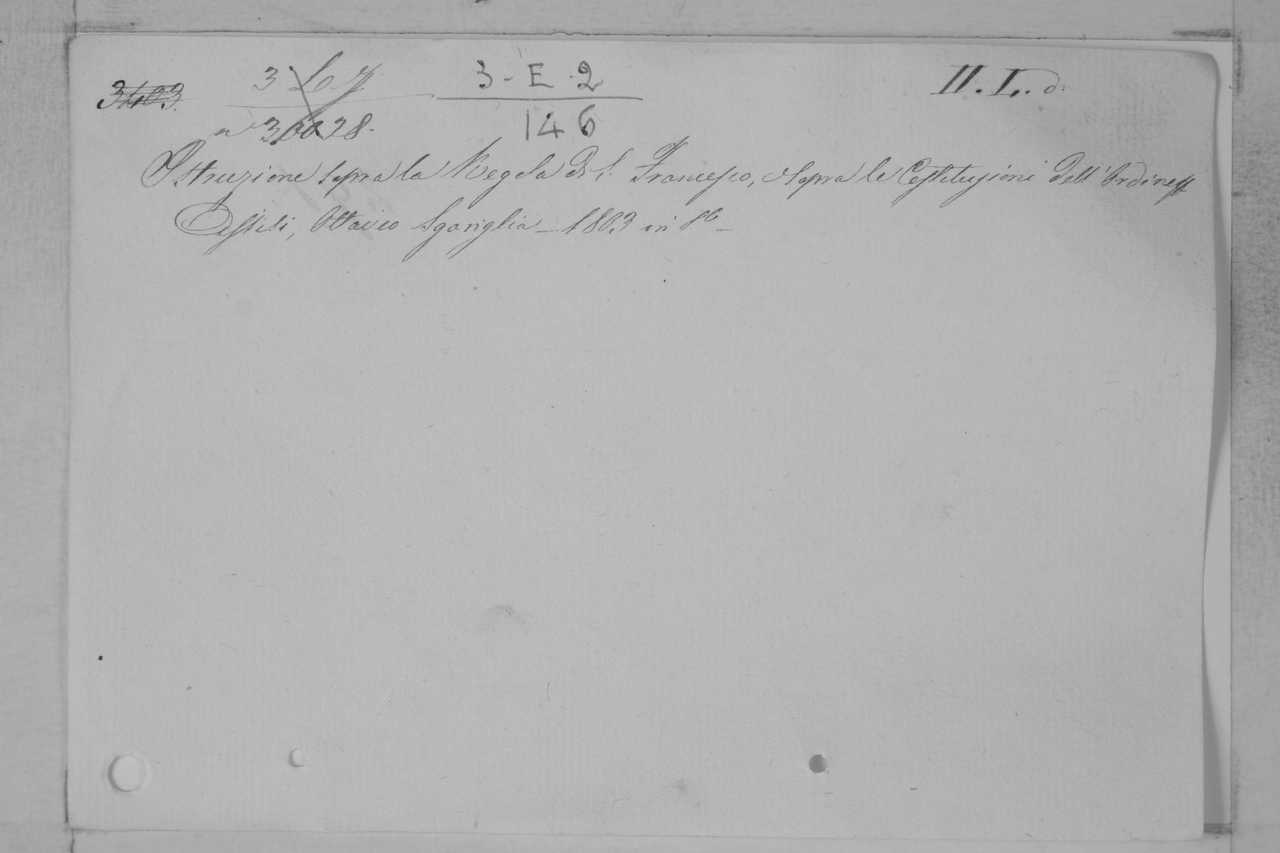 3403. 3 L. 7 3 - E. 2 II. L. d.
n° 30028. 146
Istruzione sopra la Regola di S. Francesco, e sopra le Costituzioni dell'Ordine
Ottavio Sgariglia _ 1803 in 8º _